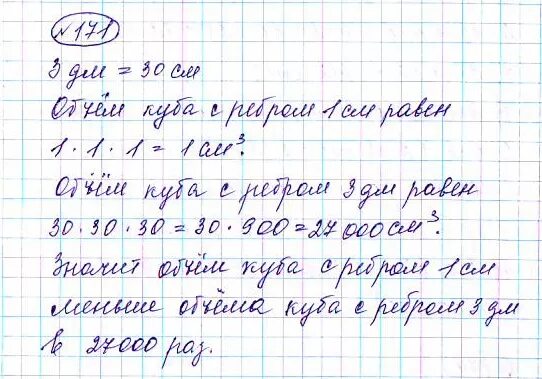 №171
3 дм = 30 см
Объём куба с ребром 1 см равен
1 · 1 · 1 = 1 см³.
Объём куба с ребром 3 дм равен
30 · 30 · 30 = 30 · 900 = 27 000 см³.
Значит объём куба с ребром 1 см
меньше объёма куба с ребром 3 дм
в 27000 раз.